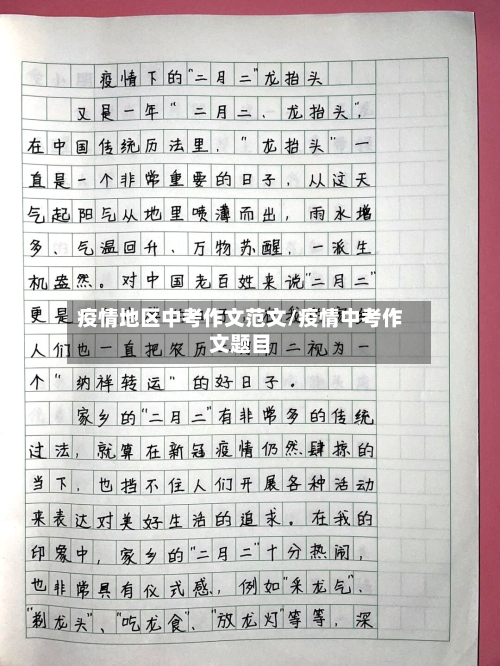 疫情下的"二月二"龙抬头
又是一年"二月二、龙抬头",
在中国传统历法里,"龙抬头"一
直是一个非常重要的日子,从这天
气起阳气从地里喷薄而出,雨水增
多、气温回升、万物苏醒,一派生
机盎然。对中国老百姓来说"二月二"
更是
疫情地区中考作文范文/疫情中考作
文题目
人们也一直把农历二视为一
个"纳祥转运"的好日子。
家乡的"二月二"有非常多的传统
过法,就算在新冠疫情仍然肆掠的
当下,也挡不住人们开展各种活动
来表达对美好生活的追求。在我的
印象中,家乡的"二月二"十分热闹,
也非常具有仪式感,例如"采龙气"、
"剃龙头"、"吃龙食"、"放龙灯"等等,深